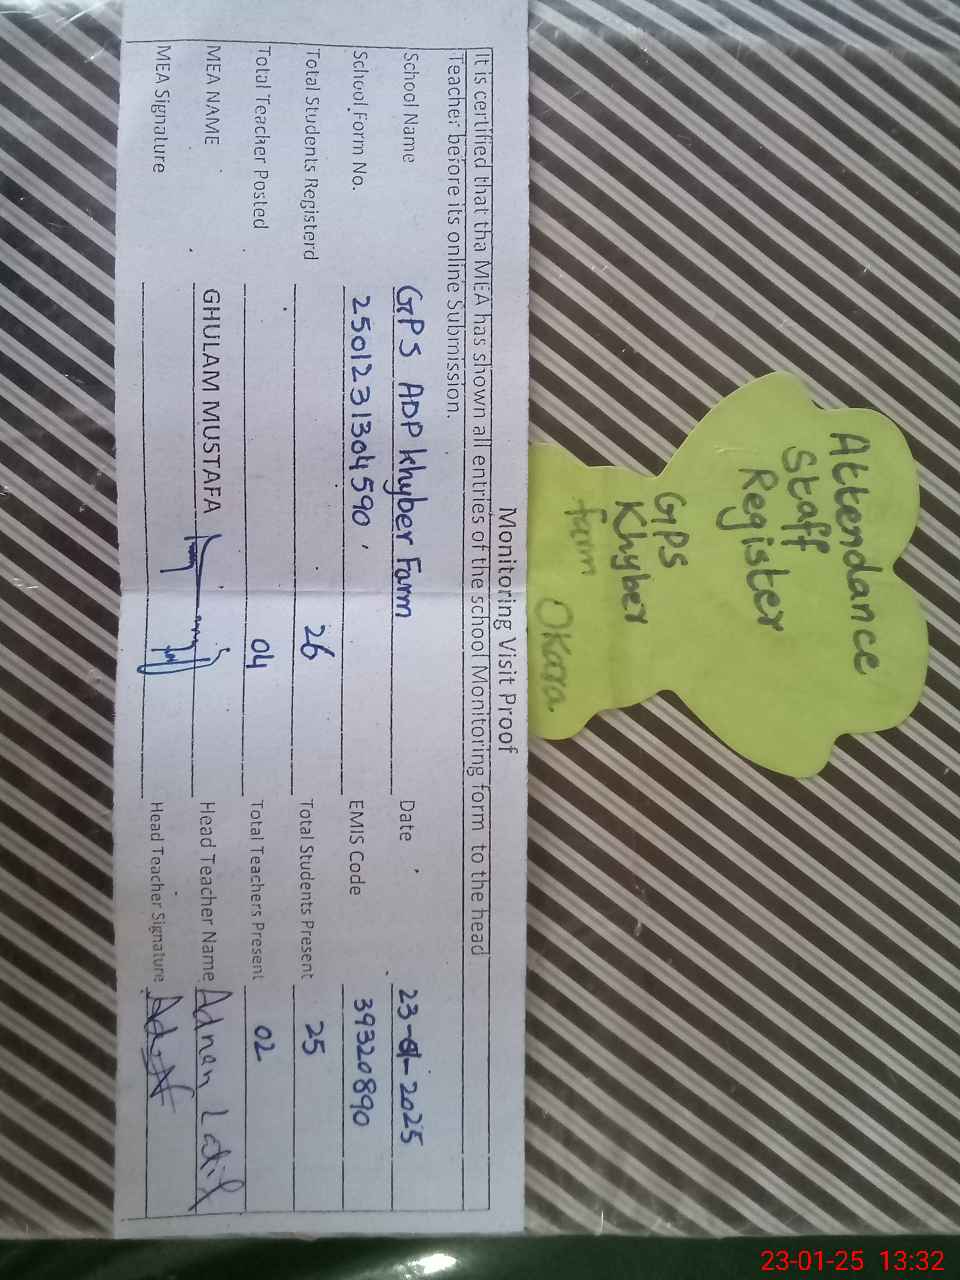 Attendance
Staff
Register
GPS
Khyber
farm
Okara
Monitoring Visit Proof
It is certified that tha MEA has shown all entries of the school Monitoring form to the head
Teacher before its online Submission.
School Name GPS ADP Khyber Farm Date 23-01-2025
School Form No. 2501231304590 EMIS Code 39320890
Total Students Registerd 26 Total Students Present 25
Total Teacher Posted 04 Total Teachers Present 02
MEA NAME GHULAM MUSTAFA Head Teacher Name Adnan Latif
MEA Signature Head Teacher Signature
23-01-25 13:32